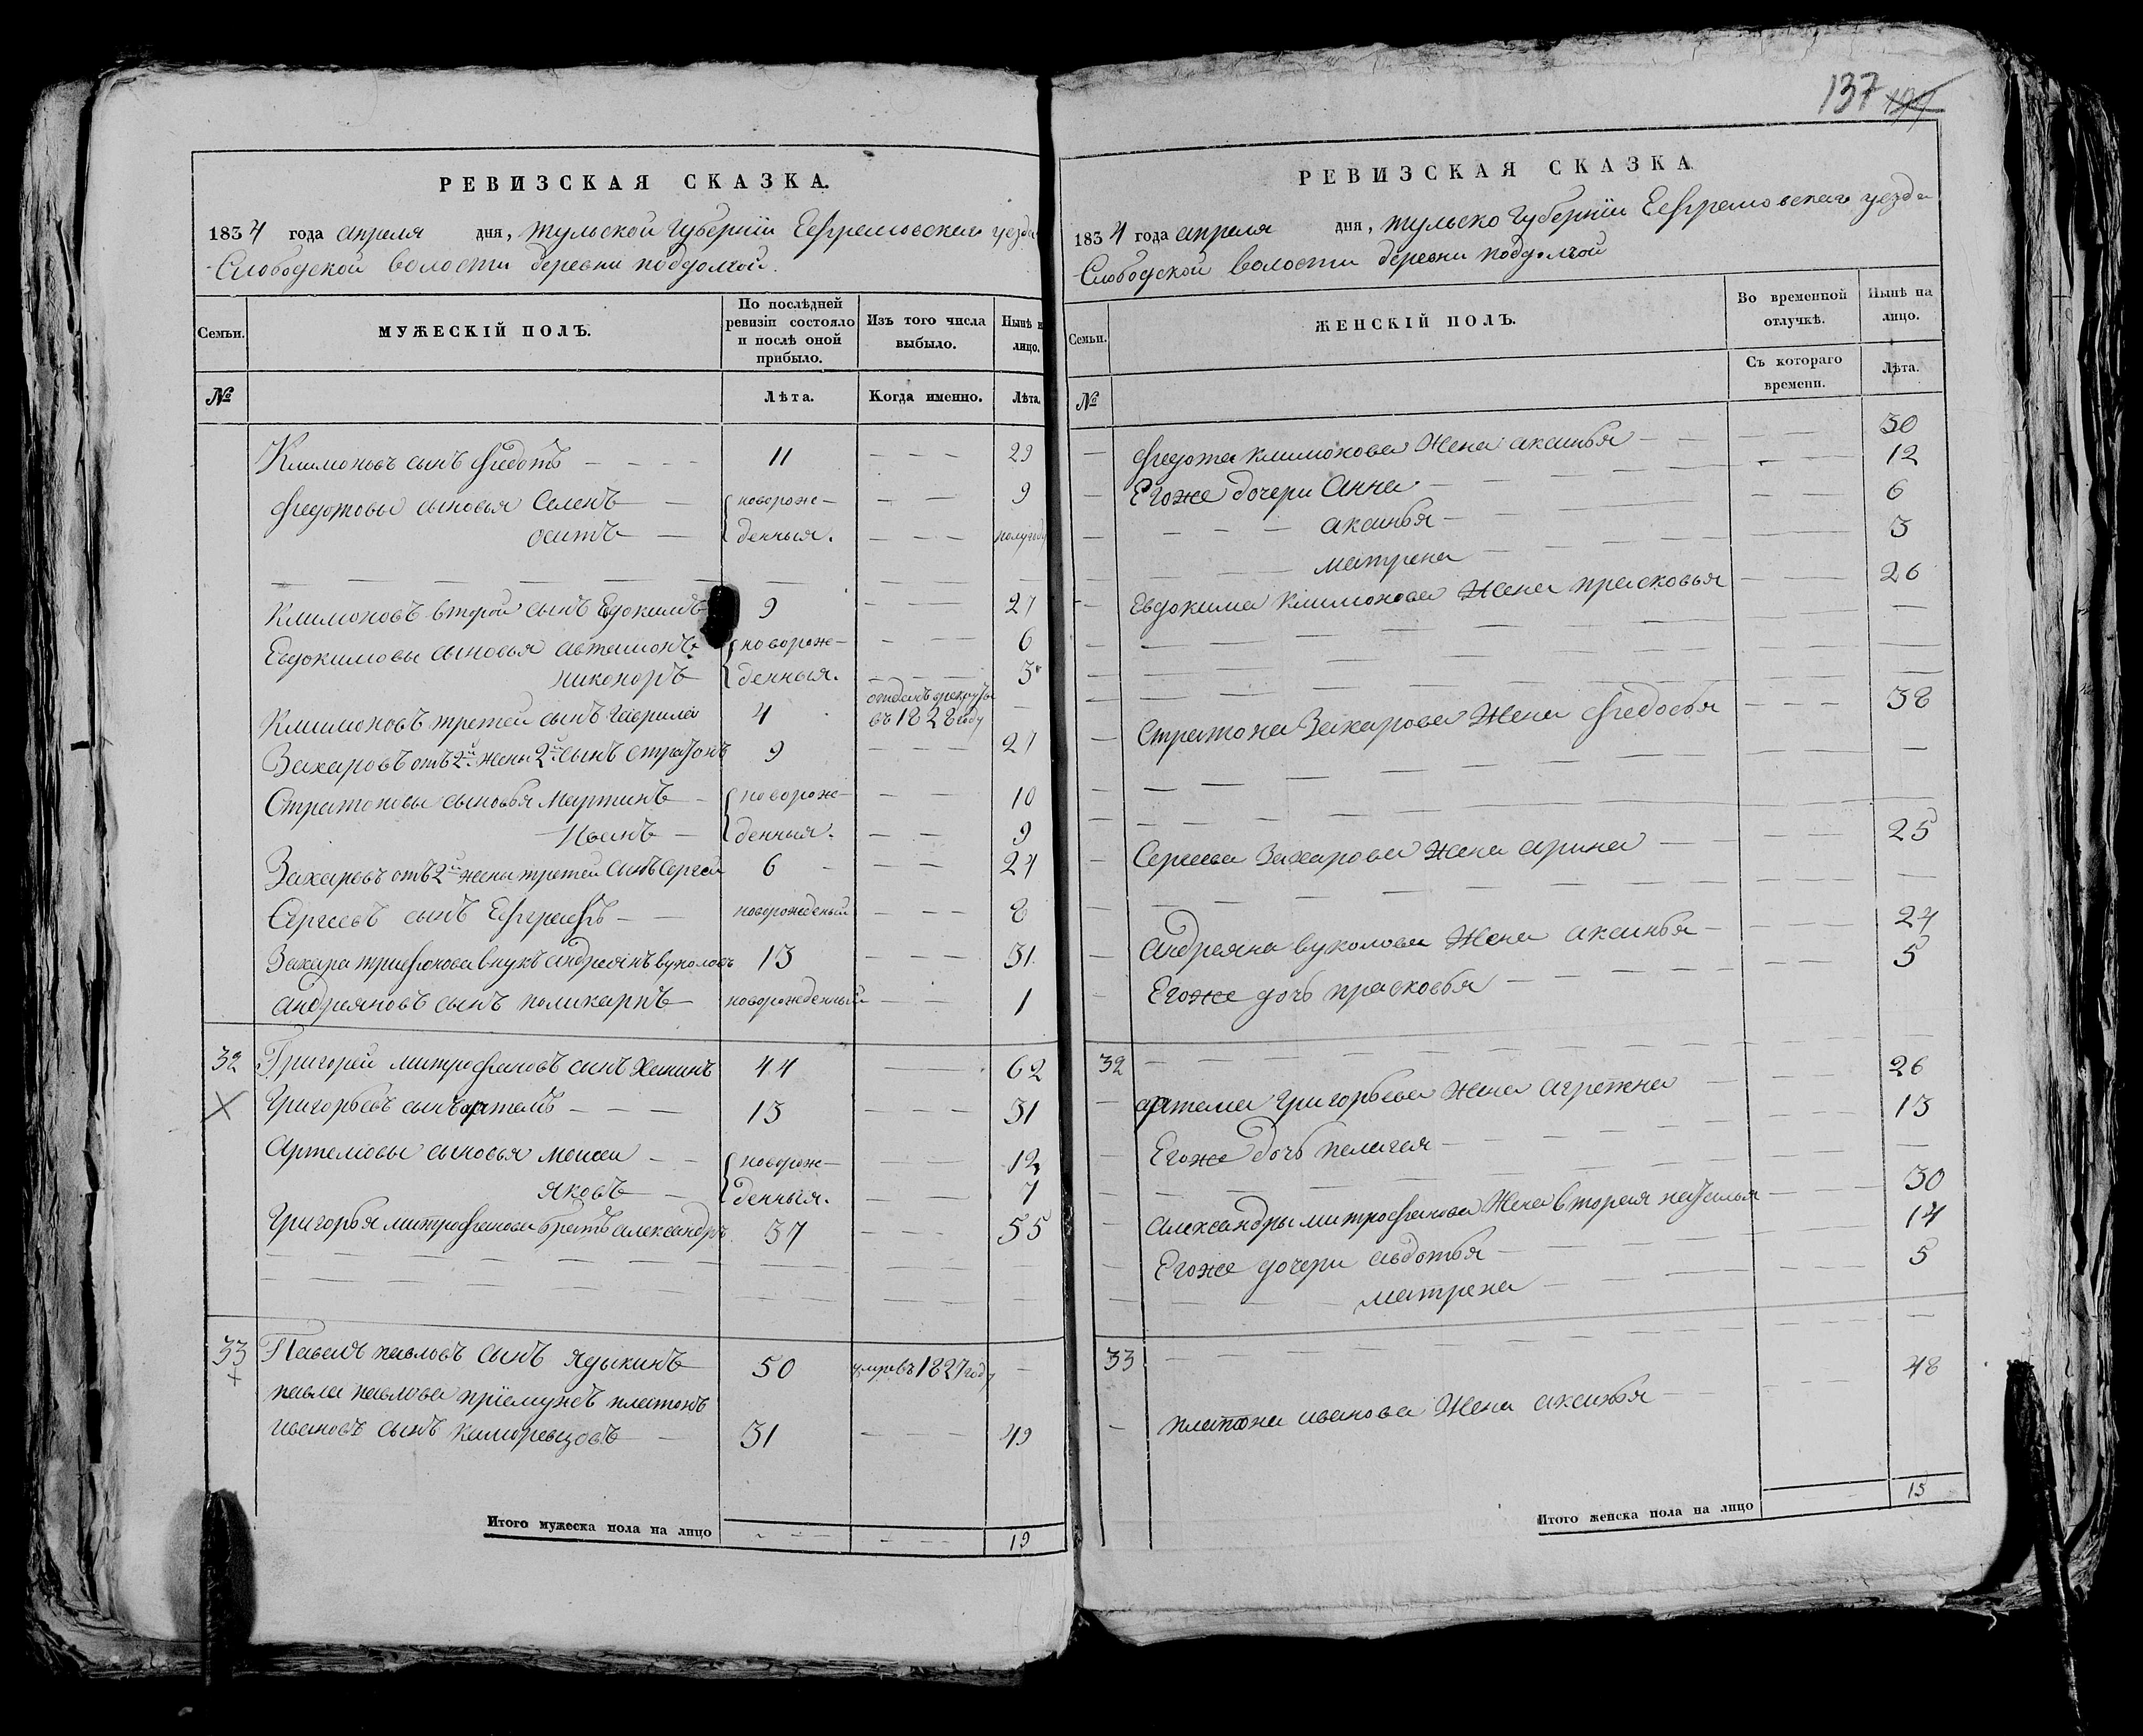 137
РЕВИЗСКАЯ СКАЗКА.
1834 года апреля дня, тульской губернїи Ефремовскаго уезда
Слободской волости деревни поддолгой.
Семьи.
МУЖЕСКІЙ ПОЛЪ.
По послѣдней ревизіи состояло и послѣ оной прибыло.
Изъ того числа выбыло.
Нынѣ н лицо.
№
Лѣта.
Когда именно.
Лѣта.
Климоновъ сынъ Федотъ 11 29
Федотовы сыновья Селенъ новорож- 9
осипъ денныя. полугоду
Климоновъ второй сынъ Евдокимъ 9 27
Евдокимовы сыновья автамонъ новорож- 6
никоноръ денныя. 3
Климоновъ третей сынъ Гаврила 4 отданъ врекруты въ 1828 году
Захаровъ отъ 2й жены 2й сынъ Стратонъ 9 27
Стратоновы сыновья Мартинъ новорож- 10
Иванъ денныя. 9
Захаровъ отъ 2й жены третей сынъ Сергей 6 24
Сергеевъ сынъ Ефграфъ новорожденый 8
Захара трифонова внукъ андреянъ вуколовъ 13 31
андреяновъ сынъ поликарпъ новорожденный 1
32 Григорей митрофановъ сынъ Ханинъ 44 62
Григорьевъ сынъ артемъ 13 31
Артемовы сыновья моисеи новорож- 12
яковъ денныя. 7
Григорья митрофанова братъ александръ 37 55
33 Павелъ павловъ сынъ Ядыкинъ 50 умре въ 1827 году
павла павлова прїемушъ платонъ
ивановъ сынъ 31 49
Итого мужеска пола на лицо 19
РЕВИЗСКАЯ СКАЗКА
1834 года апреля дня, тульско губернїи Ефремовскаго уезда
Слободской волости деревни поддолгой
Семьи.
ЖЕНСКІЙ ПОЛЪ.
Во временной отлучкѣ.
Нынѣ на лицо.
№
Съ котораго времени.
Лѣта.
Федота климонова жена аксинья 30
Егоже дочери Анна 12
аксинья 6
матрена 3
Евдокима климонова жена прасковья 26
Стратона Захарова жена Федосья 38
Сергеева Захарова жена арина 25
андреяна вуколова жена аксинья 24
Егоже дочь прасковья 5
32
артема григорьева жена агрепена 26
Егоже дочь пелагея 13
александры митрофанова жена вторая наталья 30
Егоже дочери авдотья 14
матрена 5
33
платона иванова жена аксинья 48
Итого женска пола на лицо 15